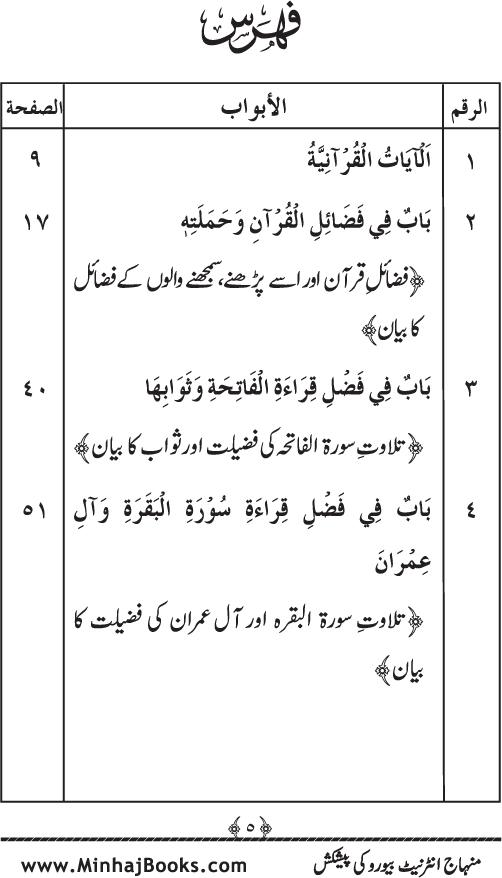 فهرس
الرقم الأبواب الصفحة
١ اَلْآيَاتُ الْقُرْآنِيَّةُ ٩
٢ بَابٌ فِي فَضَائِلِ الْقُرْآنِ وَحَمَلَتِهِ ١٧
﴿فضائلِ قرآن اور اسے پڑھنے، سمجھنے والوں کے فضائل
کا بیان﴾
٣ بَابٌ فِي فَضْلِ قِرَاءَةِ الْفَاتِحَةِ وَثَوَابِهَا ٤٠
﴿تلاوتِ سورۃ الفاتحہ کی فضیلت اور ثواب کا بیان﴾
٤ بَابٌ فِي فَضْلِ قِرَاءَةِ سُوْرَةِ الْبَقَرَةِ وَآلِ ٥١
عِمْرَانَ
﴿تلاوتِ سورۃ البقرہ اور آل عمران کی فضیلت کا
بیان﴾
﴿٥﴾
منہاج انٹرنیٹ بیورو کی پیشکش www.MinhajBooks.com